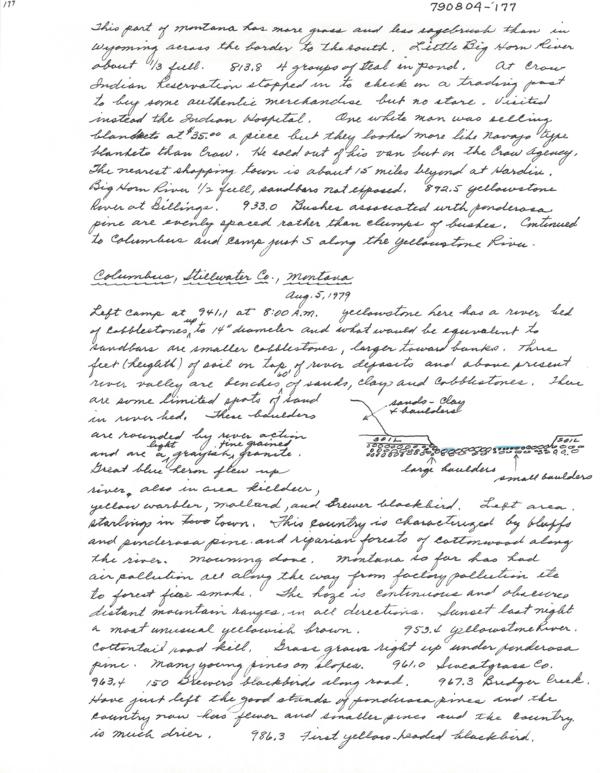 177
790804-177
This part of Montana has more grass and less sagebrush than in
Wyoming across the border to the south. Little Big Horn River
about 1/3 full. 813.8 4 groups of teal in pond. At Crow
Indian Reservation stopped in to check on a trading post
to buy some authentic merchandise but no store. Visited
instead the Indian Hospital. One white man was selling
blankets at $35.00 a piece but they looked more like Navajo type
blankets than Crow. He sold out of his van but on the Crow Agency.
The nearest shopping town is about 15 miles beyond at Hardin.
Big Horn River 1/2 full, sandbars not exposed. 892.5 Yellowstone
River at Billings. 933.0 Bushes associated with ponderosa
pine are evenly spaced rather than clumps of bushes. Continued
to Columbus and camp just S along the Yellowstone River.
Columbus, Stillwater Co., Montana
Aug. 5, 1979
Left camp at 941.1 at 8:00 A.M. Yellowstone here has a river bed
of cobblestones up to 14" diameter and what would be equivalent to
sandbars are smaller cobblestones, larger toward banks. Three
feet (heighth) of soil on top of river deposits and above present
river valley are benches 60' of sands, clay and cobblestones. There
are some limited spots of sand
in river bed. These boulders
are rounded by river action
and are a light grayish, fine grained granite.
Great blue heron flew up
river, also in area killdeer,
sands - clay
+ boulders
SOIL
SOIL
large boulders
small boulders
yellow warbler, mallard, and Brewer blackbird. Left area.
Starlings in town. This country is characterized by bluffs
and ponderosa pine and riparian forests of cottonwood along
the river. Mourning dove. Montana so far has had
air pollution all along the way from factory pollution etc
to forest fire smoke. The haze is continuous and obscures
distant mountain ranges in all directions. Sunset last night
a most unusual yellowish brown. 953.4 Yellowstone River.
Cottontail road kill. Grass grows right up under ponderosa
pine. Many young pines on slopes. 961.0 Sweatgrass Co.
963.4 150 Brewers blackbirds along road. 967.3 Bridger Creek.
Have just left the good stands of ponderosa pines and the
country now has fewer and smaller pines and the country
is much drier. 986.3 First yellow-headed blackbird.